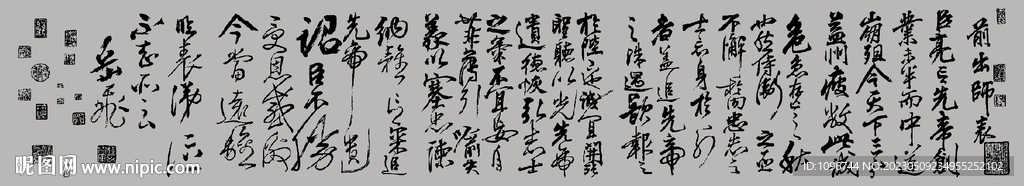 前出師表
臣亮言先帝創
業未半而中道
崩殂今天下三分
益州疲敝此誠
危急存亡之秋
也然侍衛之臣
不懈於內忠志之
士忘身於外
者蓋追先帝
之殊遇欲報之
於陛下誠宜開張
聖聽以光先帝
遺德恢弘志士
之氣不宜妄自
菲薄引喻失
義以塞忠諫
納雅言深追
先帝遺
詔臣不勝
受恩感激
今當遠離
臨表涕泣
不知所云
岳飛
昵图网 www.nipic.com